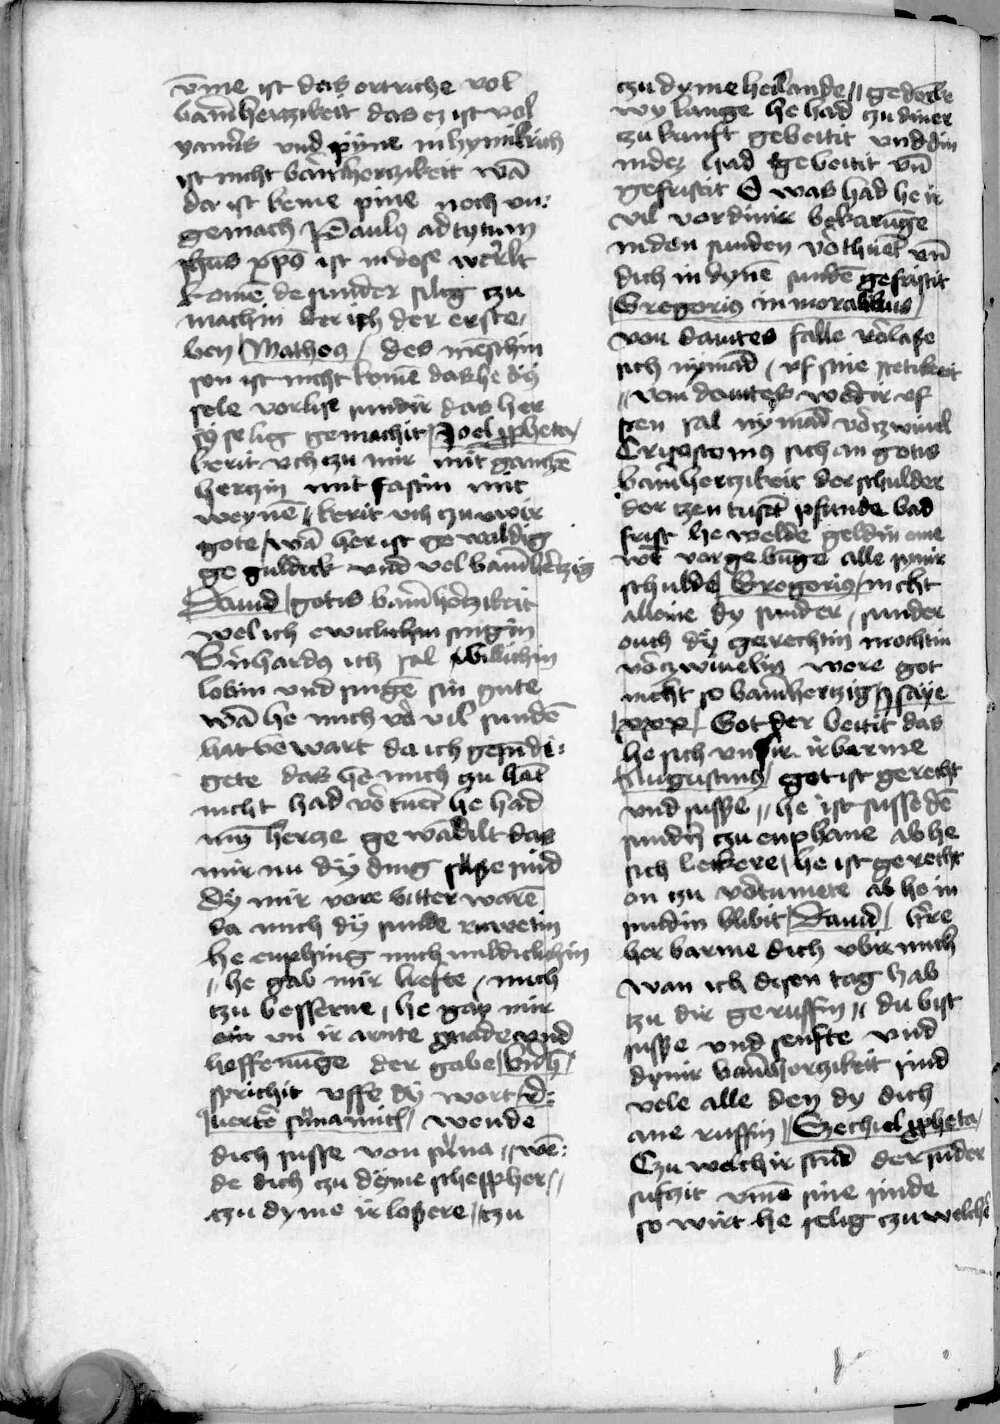 vm̄e ist das ortriche vol
barm̄hertzikeit das ez ist vol
yamirs vnd pÿne in hymilrich
ist nicht barmhertzikeit wā
da ist keine pine noch vn:
gemach Paulꝯ ad tytum
ihūs xp̄s ist in dese werlt
komē de sunder selig czu
machin der ich der erste
ben Matheꝯ des mēschin
son ist nicht komē das he dÿ
sele vorlise sundir das her
sÿ selig gemachit Joel ꝓpheta
kerit vch czu mir mit gantzē
hertzin mit fastin mit
weynē kerit vch czu uwir
gote wā her ist gewaldig
ge guldick vnd vol barm̄hertzig
Dauid gotis barm̄hertzikeit
wel ich ewiclichin singin
Bn̄hardꝯ ich sal billichin
lobin vnd singē sin gute
wā he mich vor vil sundē
hat bewart da ich gesundi:
gete das he mich czu hāt
nicht had vortūet he had
mȳ hercze gewādilt das
mir nu dÿ ding susse sind
dy mir vore bitter warē
da mich dÿ sunde ruwetin
he enphing mich mildiclichin
he gab mir liefte mich
tzu besserne he gap mir
ein vn ir arnte gnade vnd
hoffenūge der gabe bn̄h
sprichit vffe dÿ wort r:
uertē sunamitis wende
dich susse von suna wē:
de dich czu dÿme schepphers
tzu dyme irlosere tzu
czu dyme heilande gedenke
wy lange he had czu diner
zu kunft gebeitit vnd din
indez had gebeitit vn̄
gefristit O was had he ir
vil vordinir bekarūge
in den sunden vorthuet vn̄
dich in dynē sundē gefristit
Gregoriꝯ in moralibus
von dauites falle vorlase
sich nymād vf sine stetikeit
von dauites wedir vf
sten sal nÿmād vorzwiuel
Crisostomꝯ sich an gotis
barm̄hertzikeit der schulder
der tzen tusēt pfunde bad
frist he welde geldin ome
wt vorgebūge alle sinir
schulde Gregoriꝯ nicht
alleine dy sunder sunder
ouch dÿ gerechtin mochtin
vorzwiuelin were got
nicht so barm̄hertzig ysaye
xxx Got der beitit das
he sich vnsir irbarme
Augustinꝯ got ist gerecht
vnd susse he ist susse dē
sundern̄ czu enphane ab he
sich bekere he ist gerecht
on zu vortumete ab he in
sundin blibit Dauid h're
her barme dich vbir mich
wan ich desen tag hab
tzu dir geruffin du bist
susse vnd senfte vnd
dynir barmhertzikeit sind
vele alle den dy dich
ane ruffin Ezechiel ꝓpheta
Czu welchir stūd der sūder
sufzit vmē sine sunde
so wirt he selig czu welchē